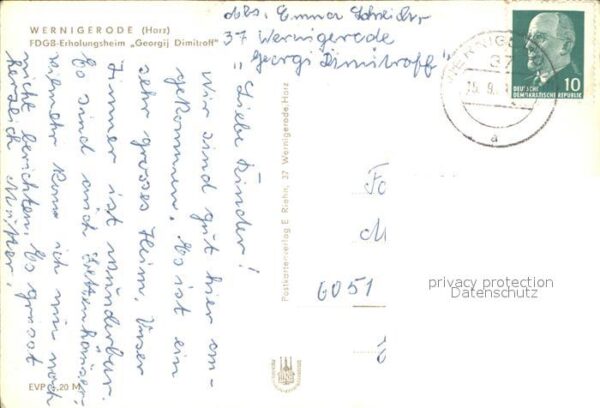 WERNIGERODE (Harz)
FDGB-Erholungsheim „Georgij Dimitroff"
Abs. Emma Schneider
37 Wernigerode
„Georgi Dimitroff"
WERNIGERODE
37
15. 9.
a
10
DEUTSCHE
DEMOKRATISCHE REPUBLIK
Liebe Kinder!
Wir sind gut hier an-
gekommen. Es ist ein
sehr grosses Heim. Unser
Zimmer ist wunderbar.
Es sind auch
kann ich nur noch
nicht berichten. Es grüsst
herzlich Mutter.
Postkartenverlag E. Riehn, 37 Wernigerode/Harz
6051
privacy protection
Datenschutz
EVP 0,20 M